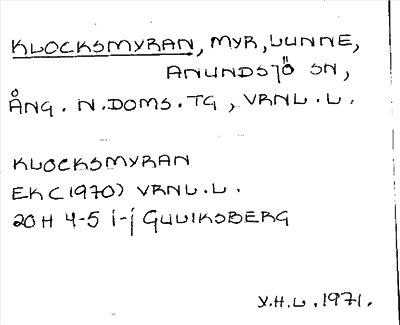 KLOCKSMYRAN, MYR, LUNNE,
ANUNDSJÖ SN,
ÅNG. N. DOMS. TG, VRNL. L.
KLOCKSMYRAN
EK (1970) VRNL. L.
20H 4-5 i-j GULIKSBERG
Y.H.L. 1971.